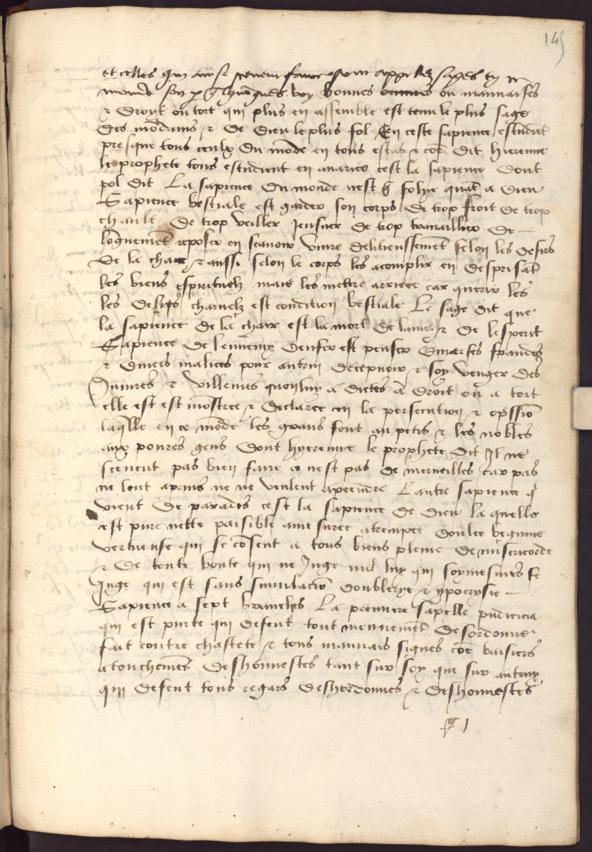 145
et celles qui ainsi scevent faire sont appellez sages en ce
monde soit par quelconques voy bonnes ou mauvaises
& droit ou tort qui plus en assemble est tenu le plus sage
des modains & de dieu le plus fol En ceste sapience estudient
presque tous ceulx du mode en tous estas & coe dit hieremie
le prophete tous estudient en avarice cest la sapience dont
pol dit La sapience du monde nest q folye quat a dieu
Sapience bestiale est garder son corps de trop froit de trop
chault De trop veiller jeusner de trop travaillier de
longuement reposer en scavoir vivre delicieusement selon les desirs
de la chair & aussi selon le corps les acomplir en desprisat
les biens espirituelz mais les mettre arriere car querir les
les delits charnelz est condition bestiale Le sage dit que
la sapience de la chair est la mort de lame & de lesperit
Sapience de lennemy denfer est penser diverses fraudes
& divers malices pour autruy decepvoir & soy venger des
injures & villenies quon luy a dictes a droit ou a tort
elle est est monstree & declaree en la persecution & opssio
laqlle en ce mode les grans font au petis & les nobles
aux povres gens dont hyeremie le prophete dit Il ne
scevent pas bien faire ce nest pas de merveilles car pas
ne lont aprins ne ne veulent aprendre Lautre sapience q
vient de paradis cest la sapience de dieu laquelle
est pure nette paisible amesuree atrempee doulce begnine
vertueuse qui se cosent a tous biens pleine de misericorde
& de toute bonte qui ne juge nul luy qui soymesmes se
juge qui est sans simulatio doublerye & ypocrysie
Sapience a sept branches La premiere sapelle pudicicia
qui est purte qui defent tout mouvement desordonne
fait contre chastete & tous mauvais signes coe baisiers
atouchemes deshonnestes tant sur soy que sur autruy
qui defent tous regars deshordonnes & deshonnestes